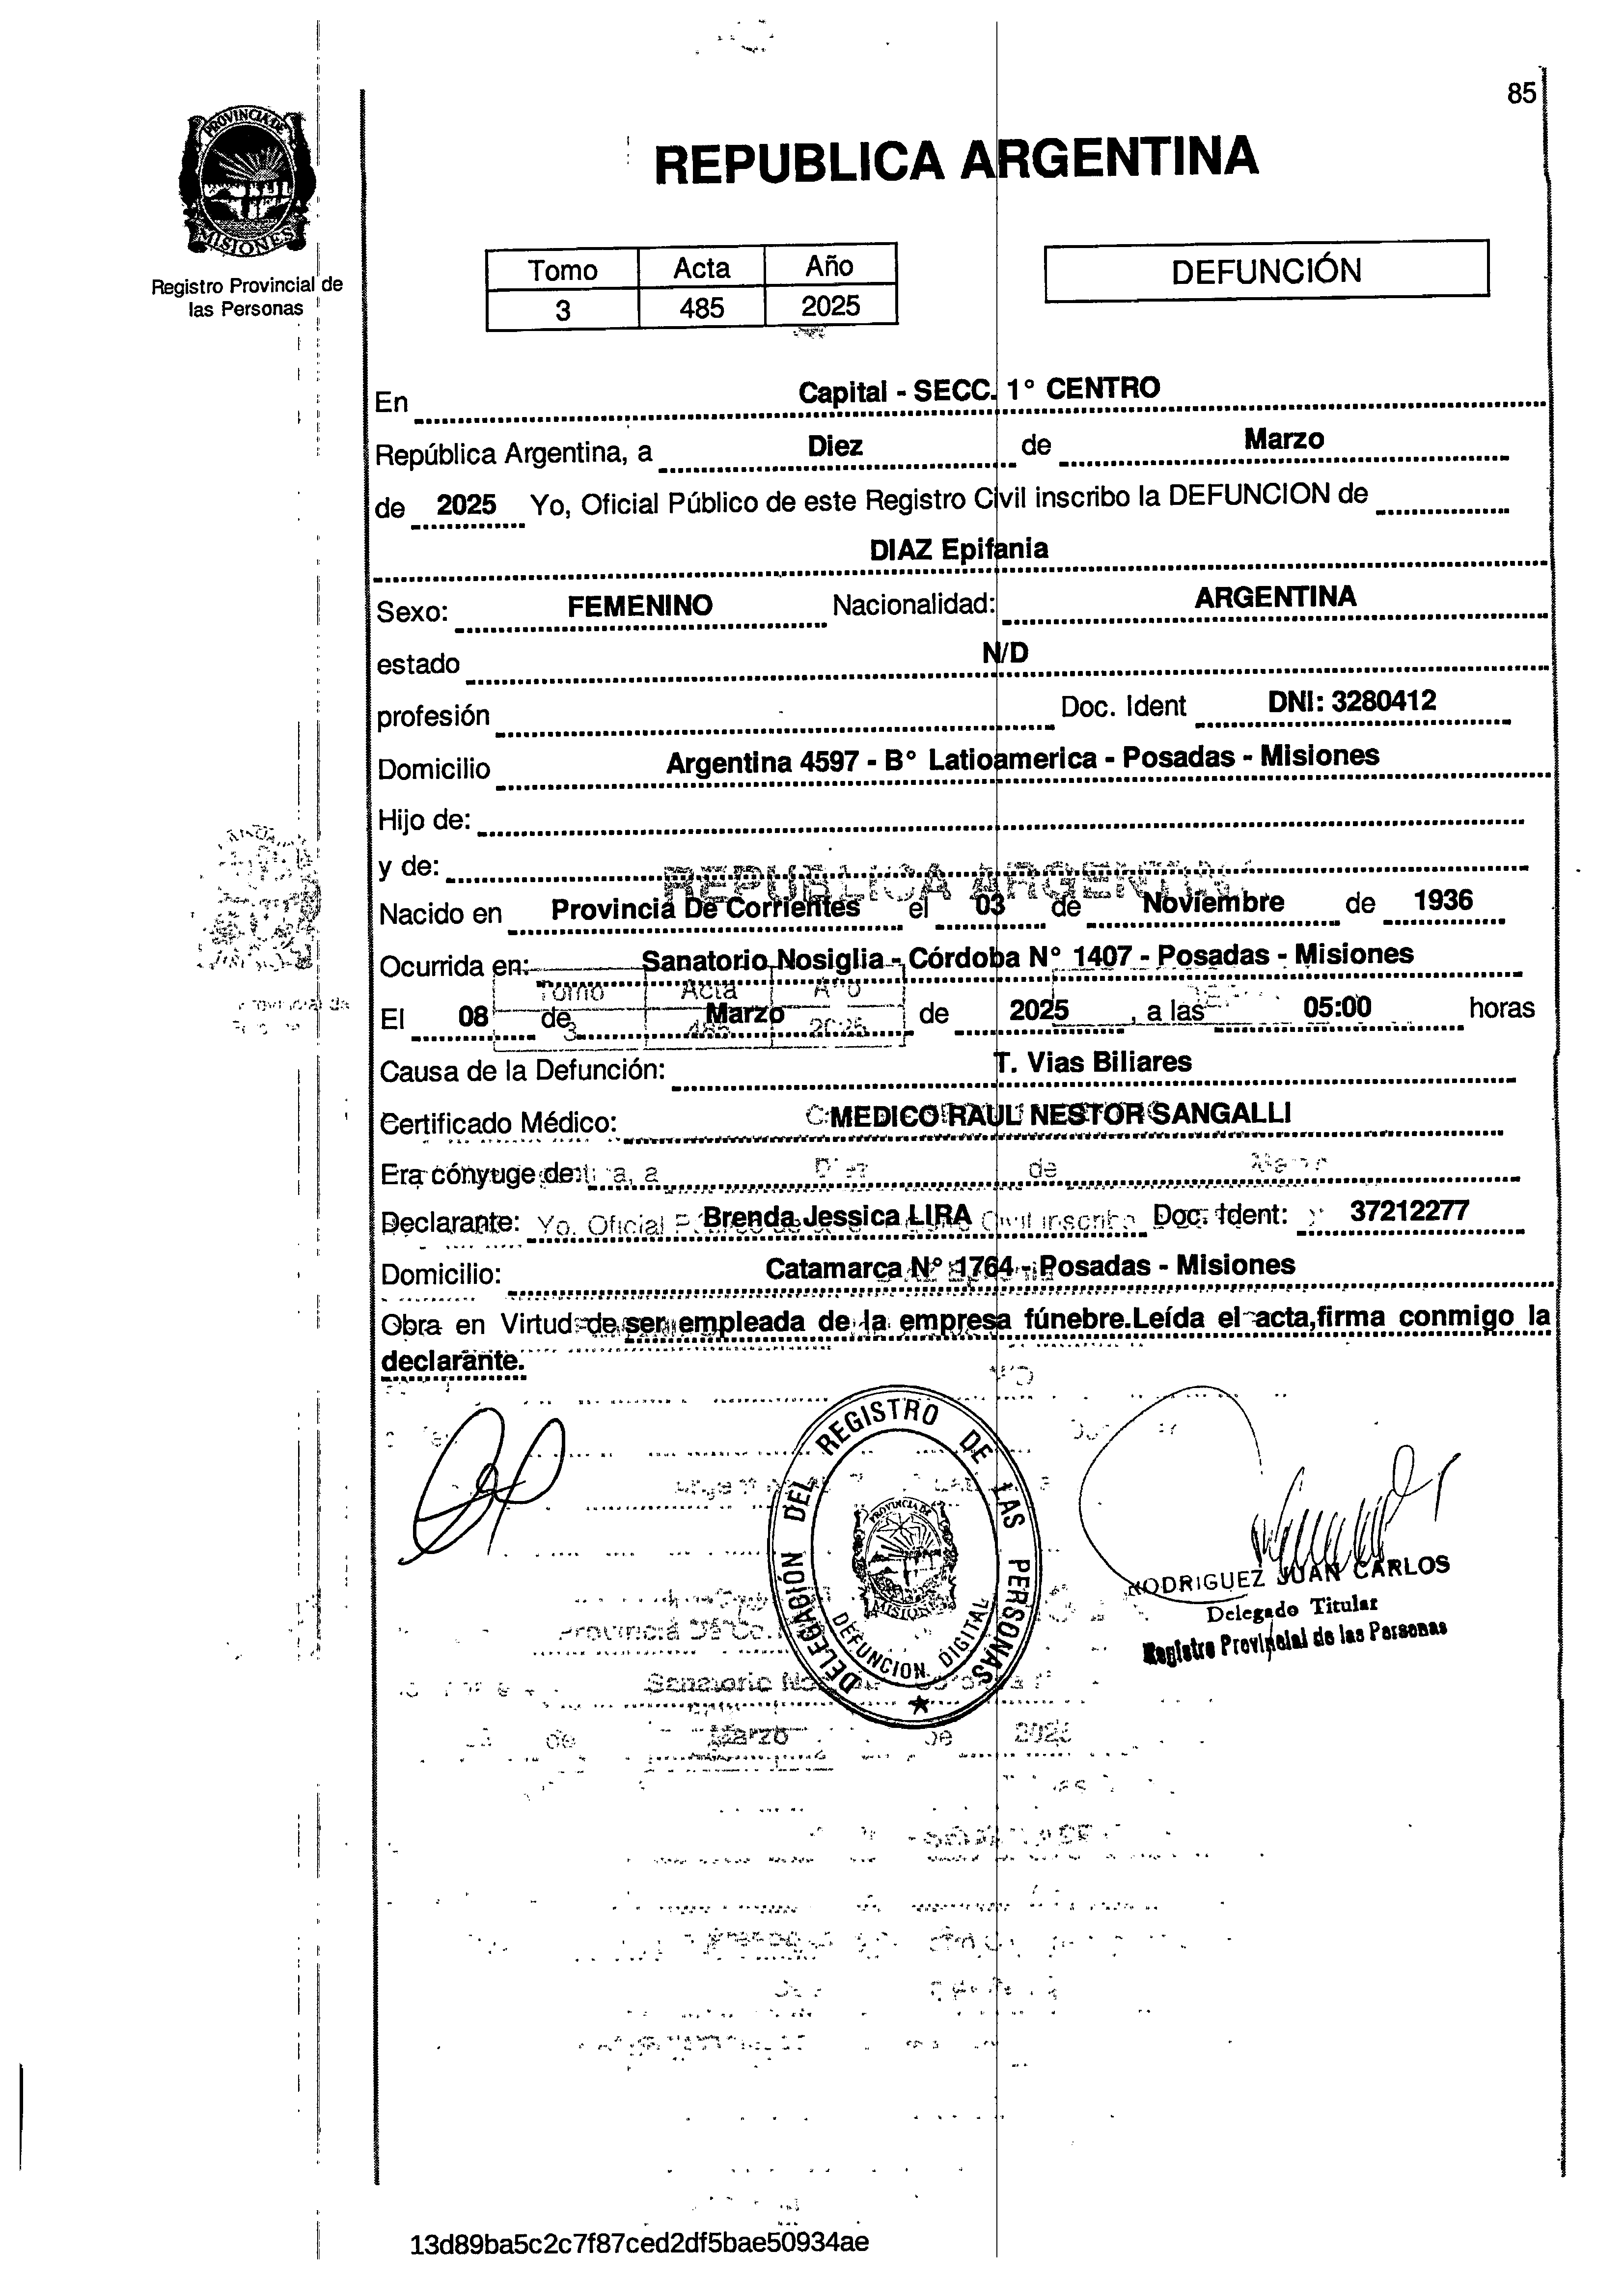 85
PROVINCIA DE
MISIONES
Registro Provincial de
las Personas
REPUBLICA ARGENTINA
Tomo Acta Año
3 485 2025
DEFUNCIÓN
En Capital - SECC. 1° CENTRO
República Argentina, a Diez de Marzo
de 2025 Yo, Oficial Público de este Registro Civil inscribo la DEFUNCION de
DIAZ Epifania
Sexo: FEMENINO Nacionalidad: ARGENTINA
estado N/D
profesión - Doc. Ident DNI: 3280412
Domicilio Argentina 4597 - B° Latioamerica - Posadas - Misiones
Hijo de:
y de:
REPUBLICA ARGENTINA
Nacido en Provincia De Corrientes el 03 de Noviembre de 1936
Ocurrida en: Sanatorio Nosiglia - Córdoba N° 1407 - Posadas - Misiones
Tomo Acta Año
El 08 de Marzo de 2025, a las 05:00 horas
3 485 2025
Causa de la Defunción: T. Vias Biliares
Certificado Médico: MEDICO RAUL NESTOR SANGALLI
Era cónyuge de:
Declarante: Brenda Jessica LIRA Doc. Ident: 37212277
Domicilio: Catamarca N° 1764 - Posadas - Misiones
Obra en Virtud de ser empleada de la empresa fúnebre.Leída el acta,firma conmigo la
declarante.
DELEGACIÓN DEL REGISTRO DE LAS PERSONAS
PROVINCIA DE
MISIONES
DEFUNCION DIGITAL
RODRIGUEZ JUAN CARLOS
Delegado Titular
Registro Provincial de las Personas
Provincia De
Sanatorio
de Marzo de 2025
13d89ba5c2c7f87ced2df5bae50934ae